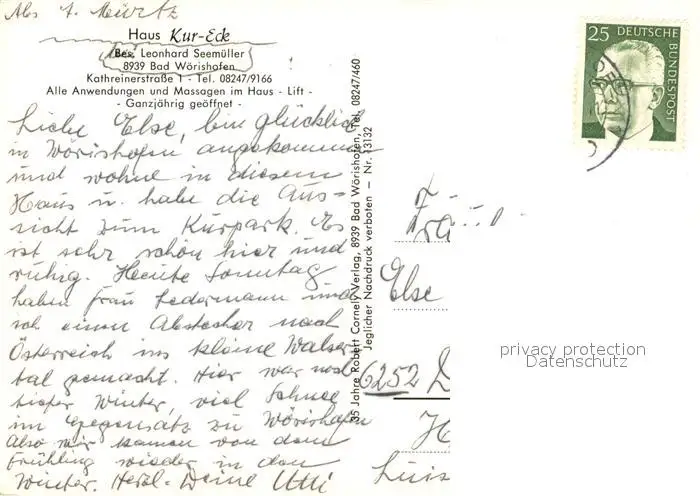 Abs. 
Haus Kur-Eck
Bes. Leonhard Seemüller
8939 Bad Wörishofen
Kathreinerstraße 1 - Tel. 08247/9166
Alle Anwendungen und Massagen im Haus - Lift -
- Ganzjährig geöffnet -
Liebe Else, bin glücklich
in Wörishofen angekommen
und wohne in diesem
Haus u. habe die Aus-
sicht zum Kurpark. Es
ist sehr schön hier und
ruhig. Heute Sonntag
haben Frau Ledermann und
ich einen Abstecher nach
Österreich ins kleine Walser-
tal gemacht. Hier war noch
tiefer Winter, viel Schnee
im Gegensatz zu Wörishofen
Also wir kamen von dem
Frühling wieder in den
Winter. Herzl. Deine Utti
35 Jahre Robert Cornely Verlag, 8939 Bad Wörishofen, Tel. 08247/460
Jeglicher Nachdruck verboten - Nr. 13132
25 DEUTSCHE
BUNDESPOST
Frau
Else
6252 D
H
Luis
privacy protection
Datenschutz